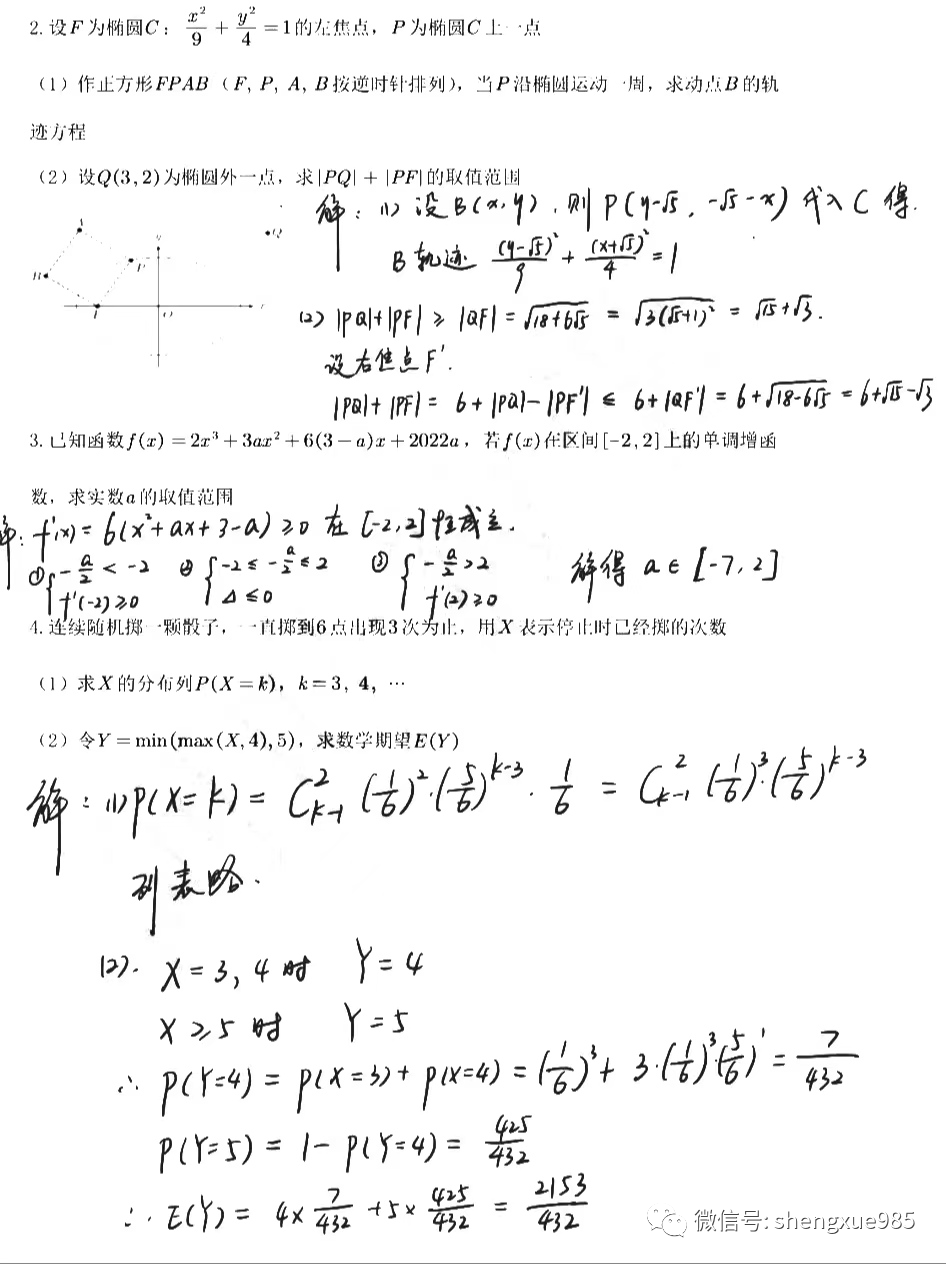 2. 设F为椭圆C： x²/9 + y²/4 = 1的左焦点，P为椭圆C上一点
（1）作正方形FPAB（F, P, A, B按逆时针排列），当P沿椭圆运动一周，求动点B的轨
迹方程
（2）设Q(3, 2)为椭圆外一点，求|PQ| + |PF|的取值范围
解：(1) 设B(x, y)，则P(y-√5, -√5-x) 代入C得.
B轨迹 (y-√5)²/9 + (x+√5)²/4 = 1
(2) |PQ|+|PF| ≥ |QF| = √(18+6√5) = √(3(√5+1)²) = √15+√3.
设右焦点F'.
|PQ|+|PF| = 6+|PQ|-|PF'| ≤ 6+|QF'| = 6+√(18-6√5) = 6+√15-√3
y
Q
P
B
O
3. 已知函数f(x) = 2x³ + 3ax² + 6(3 − a)x + 2022a，若f(x)在区间[−2, 2]上的单调增函
数，求实数a的取值范围
解：f'(x) = 6(x²+ax+3-a) ≥0 在 [-2,2] 恒成立.
① { -a/2 < -2 ② { -2 ≤ -a/2 ≤ 2 ③ { -a/2 > 2 解得 a∈[-7, 2]
f'(-2) ≥0 Δ ≤ 0 f'(2) ≥0
4. 连续随机掷一颗骰子，一直掷到6点出现3次为止，用X表示停止时已经掷的次数
（1）求X的分布列P(X = k)，k = 3, 4, ⋯
（2）令Y = min(max(X, 4), 5)，求数学期望E(Y)
解：(1) P(X=k) = C²ₖ₋₁ (1/6)²·(5/6)^(k-3)·1/6 = C²ₖ₋₁ (1/6)³·(5/6)^(k-3)
列表略.
(2). X=3, 4时 Y=4
X≥5时 Y=5
∴ P(Y=4) = P(X=3)+P(X=4) = (1/6)³+3·(1/6)³·(5/6)¹ = 7/432
P(Y=5) = 1-P(Y=4) = 425/432
∴ E(Y) = 4×7/432 + 5×425/432 = 2153/432
微信号: shengxue985